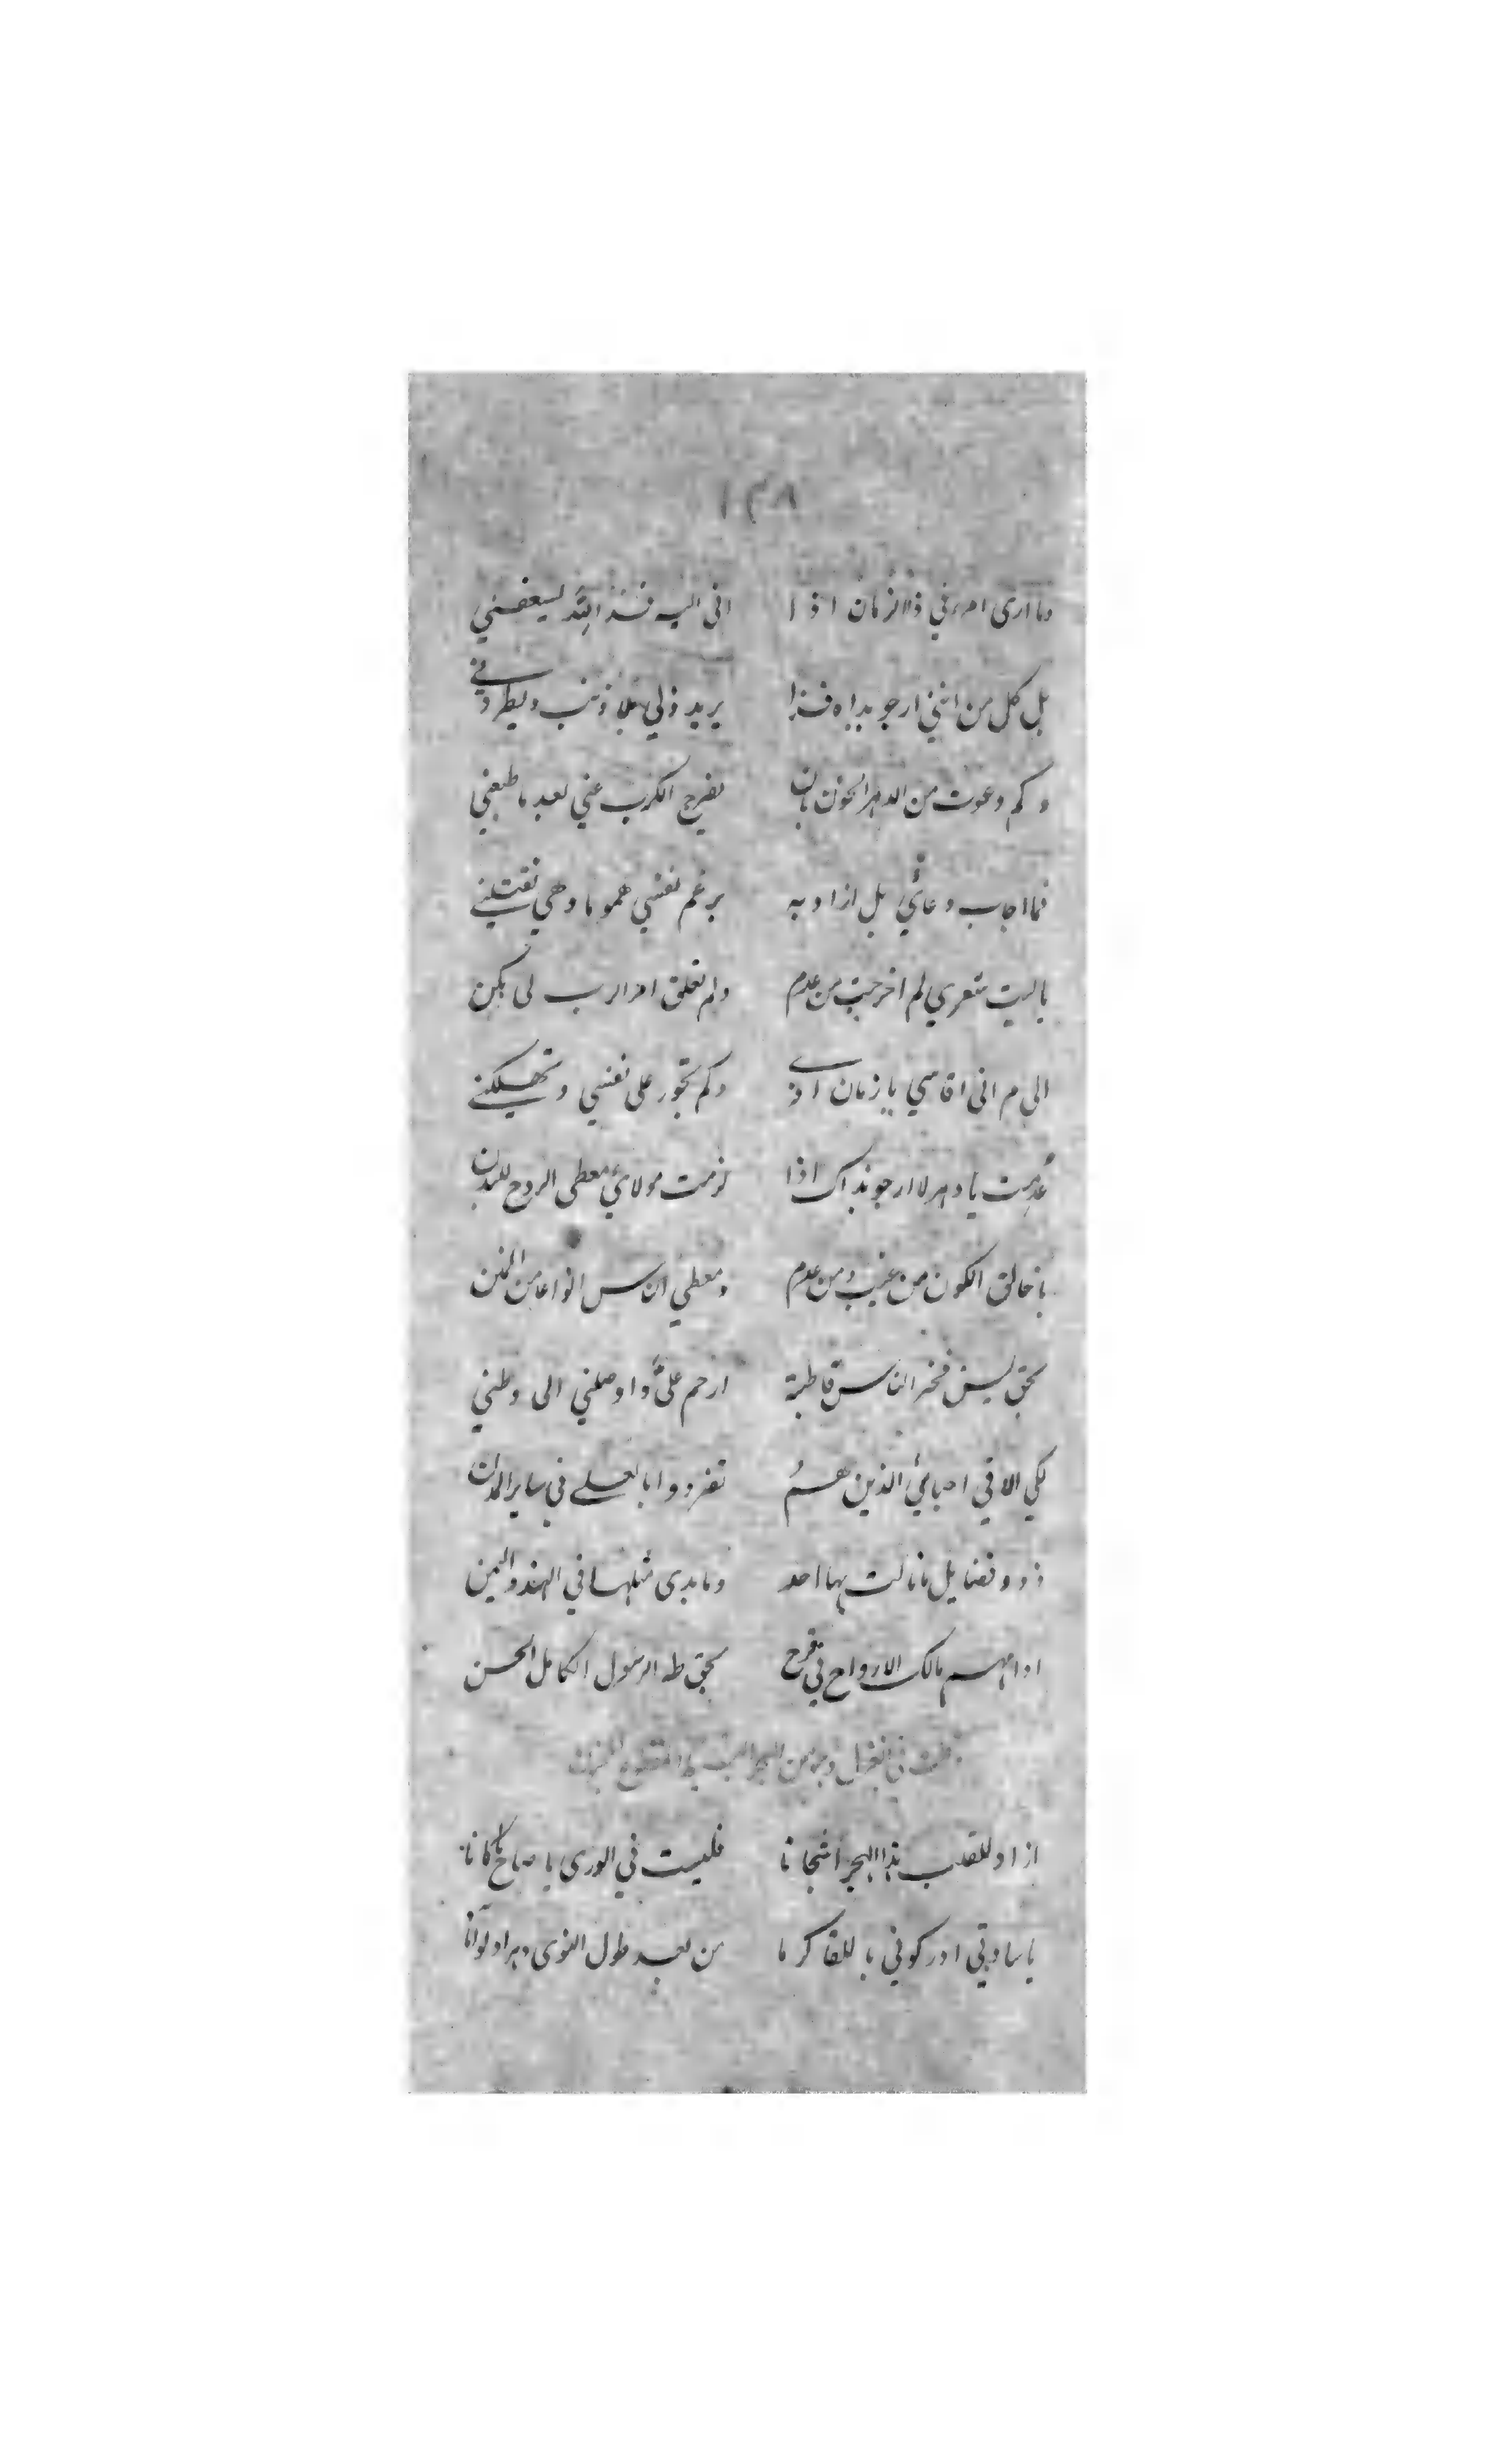 ١٣٨
وما ارى امرء في ذا الزمان اذا اتى اليه فتذ ليسعفني
بل كل من انني ارجو نداه فذا يريد ذلي بلا ذنب ويطردني
وكم دعوت من الدهر الخؤن بان يفرج الكرب عني بعد ما
فما اجاب دعائي بل ازاد به برغم نفسي هموما وهي تقتلني
ياليت شعري لم اخرجت من عدم ولم تعلق امرا رب لي بكن
الى م اني اقاسي يا زمان اذى وكم تجور على نفسي وتهلكني
عدمت يا دهر لا ارجو نداك اذا لزمت مولاي معطى الروح للبدن
يا خالق الكون من غيب ومن عدم ومعطي الناس انواعا من المنن
بحق يس فخر الناس قاطبة ارحم عليّ واوصلني الى وطني
لكي الاقي احبائي الذين همُ تفردوا بالعلى في ساير المدن
ذوو فضايل ما نالت بها احد وما بدى مثلها في الهند واليمن
ادامهم مالك الارواح في فرح بحق طه الرسول الكامل الحسن
في الغزل وهو من البحر البسيط
ازاد للقلب هذا الهجر اشجانا فليت في الورى يا صاح لا كانا
يا سادتي ادركوني باللقا كرما من بعد طول النوى